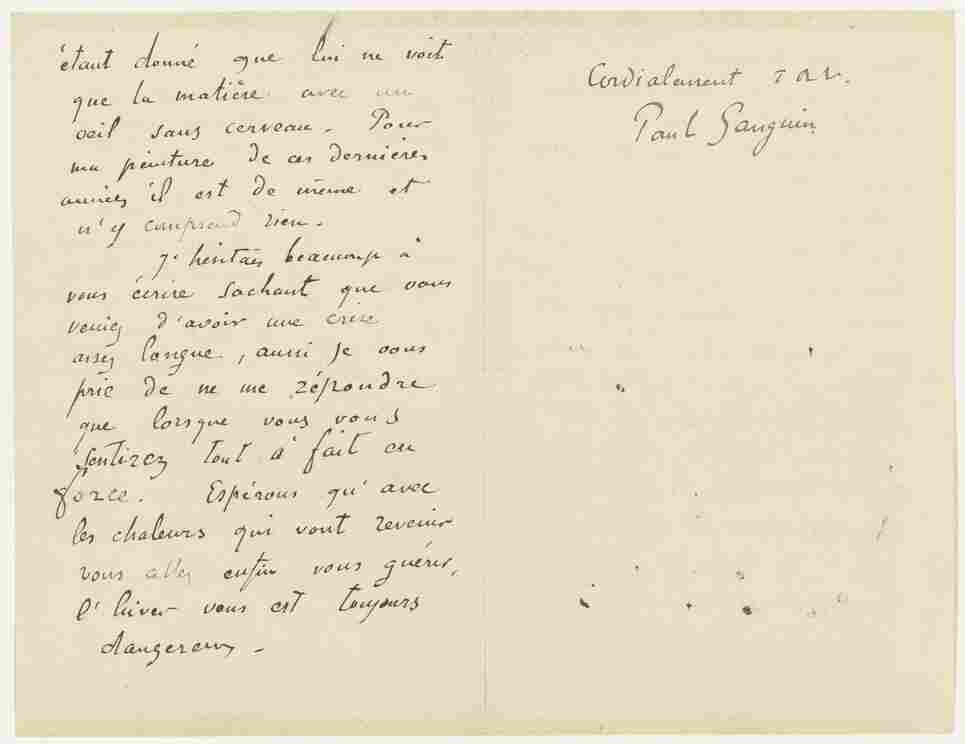 étant donné que lui ne voit
que la matière avec un
oeil sans cerveau. Pour
ma peinture de ces dernières
années il est de même et
n'y comprend rien.
J'hésitais beaucoup à
vous écrire sachant que vous
veniez d'avoir une crise
assez longue, aussi je vous
prie de ne me répondre
que lorsque vous vous
sentirez tout à fait en
force. Espérons qu'avec
les chaleurs qui vont revenir
vous allez enfin vous guérir,
l'hiver vous est toujours
dangereux -
Cordialement T. à v.
Paul Gauguin